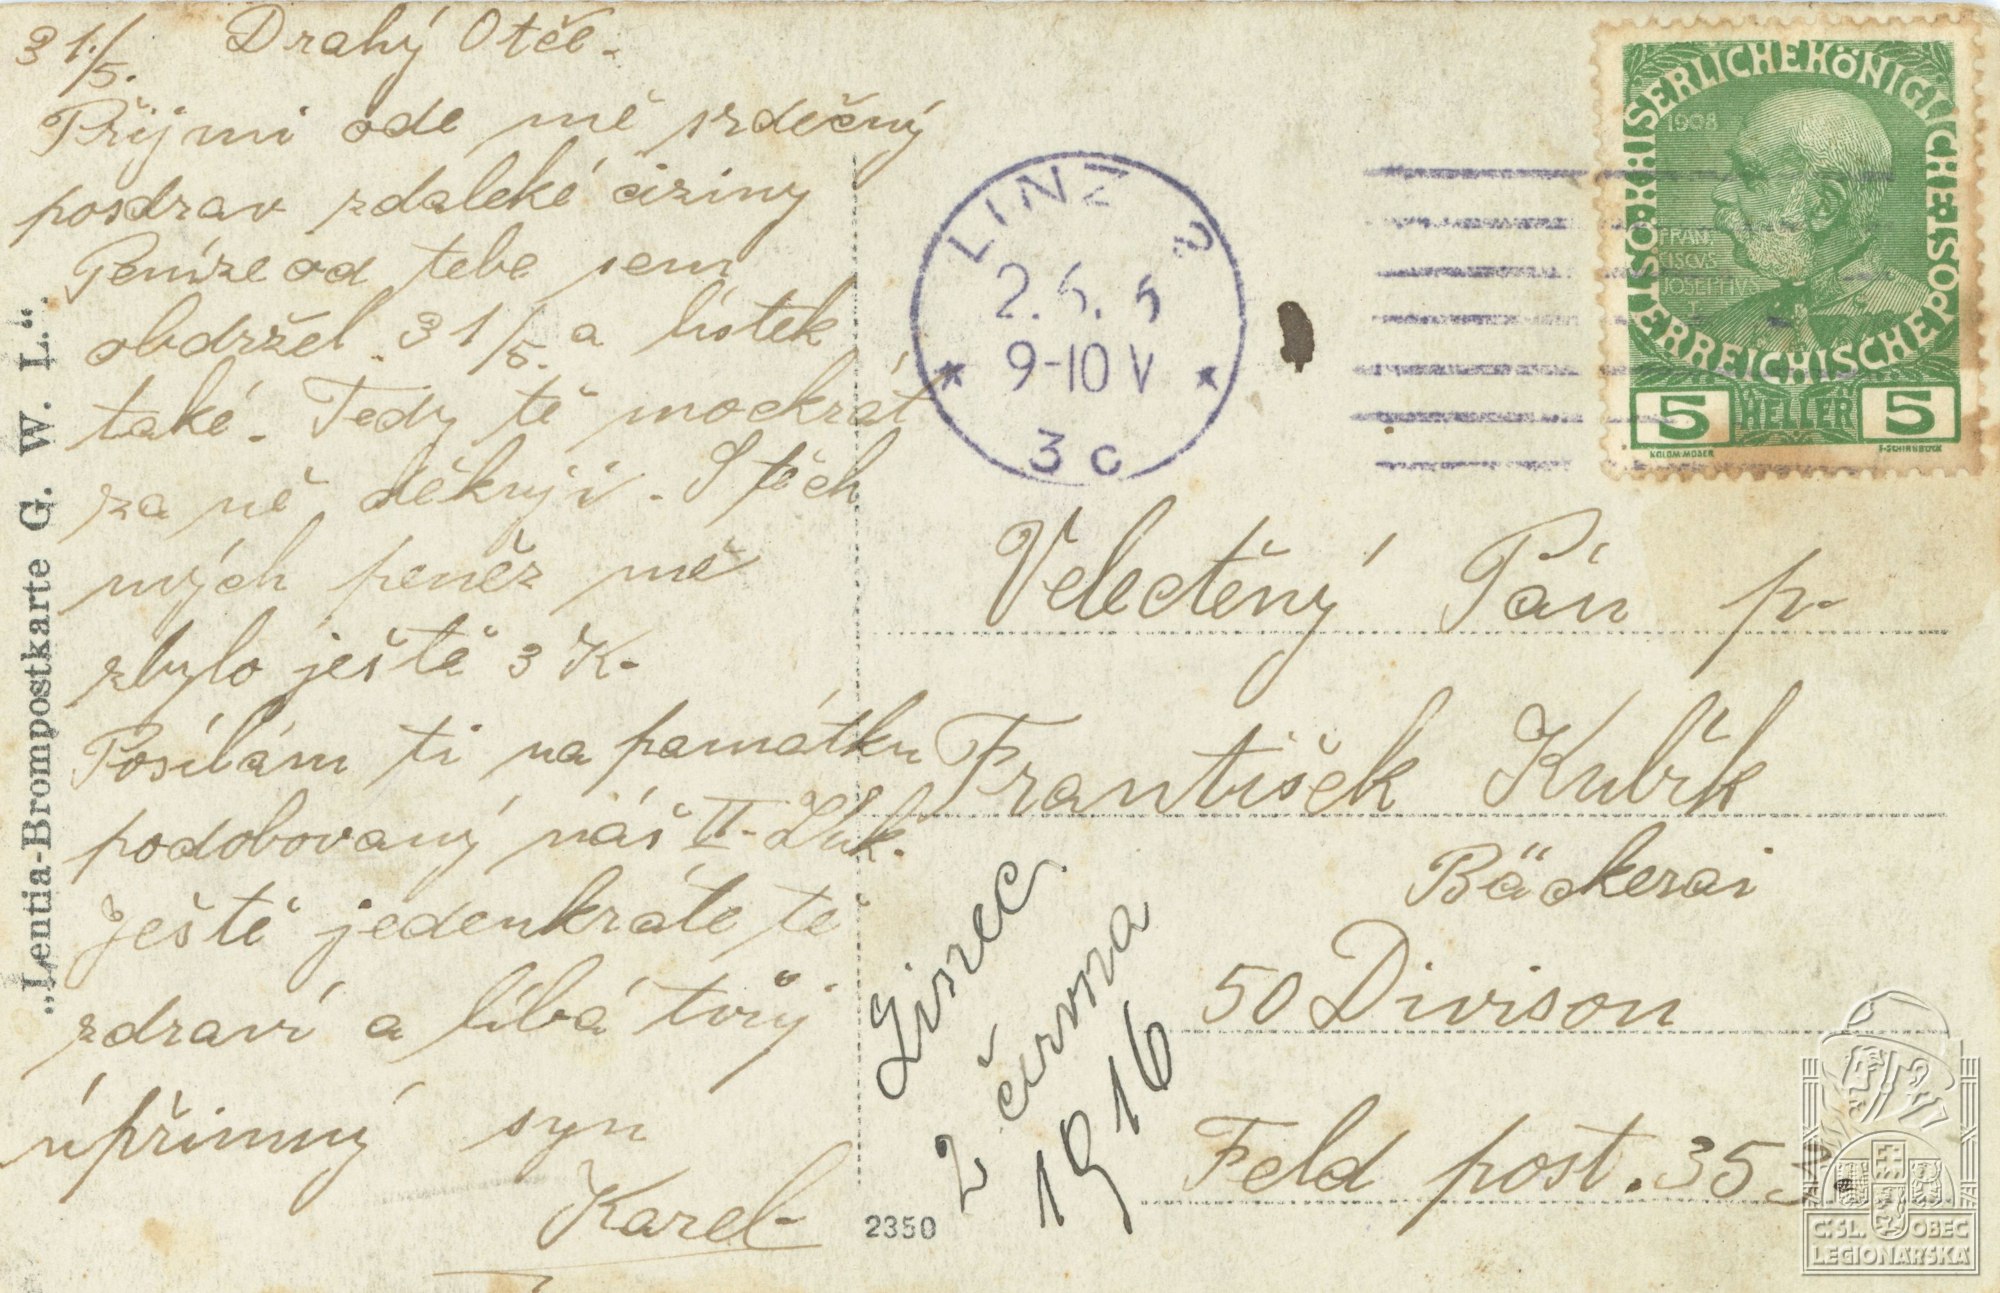 31./5. Drahý Otče.
Přijmi ode mě srdečný
pozdrav zdaleké ciziny
Peníze od tebe sem
obdržel 31/5. a lístek
také. Tedy tě mockrát
za ně děkuji. S těch
mých peněz mě
zbylo ještě 3 K.
Posílám ti na památku
podobovaný náš II. Zuk.
Ještě jedenkráte tě
zdraví a líbá tvůj
úpřimný syn
Karel
„Lentia-Brompostkarte G. W. L.“
2350
LINZ 2
2.6. 
9-10 V
3c
KAISERLICHEKÖNIGLICHE POST
ÖSTERREICHISCHE
1908
FRAN
CISCVS
JOSEPHVS
I
5 HELLER 5
KOLOM·MOSER
F·SCHIRNBÖCK
Velectěný Pán p.
František Kubřk
Bäckerai
50 Divison
Feld post. 353.
Linec
2 června
1916
Č.SL. OBEC
LEGIONÁŘSKÁ